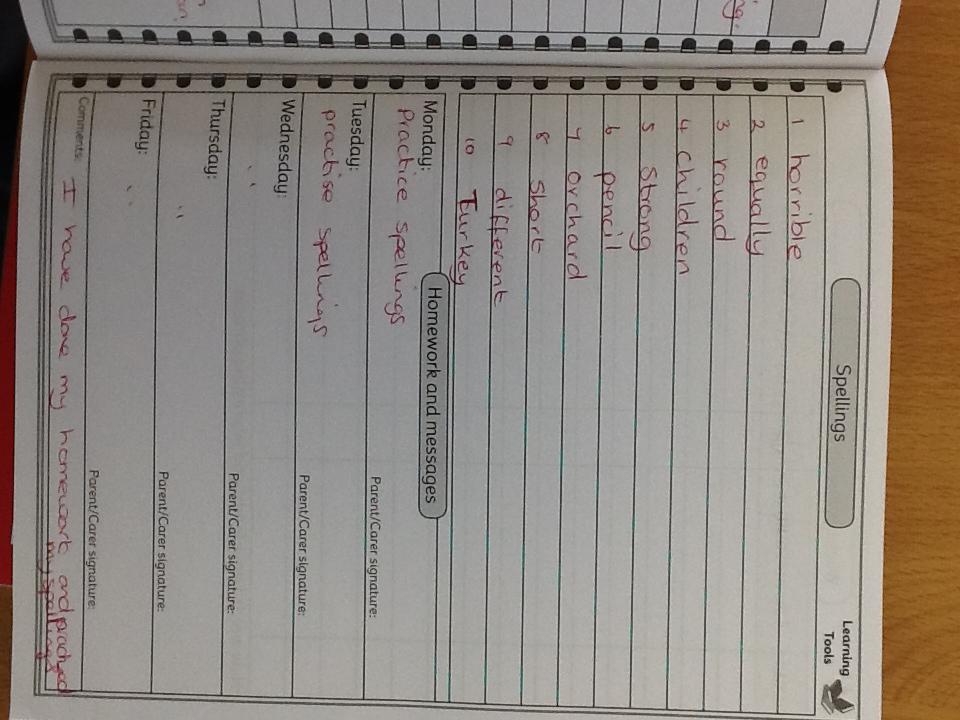 Spellings
Learning
Tools
1 horrible
2 equally
3 round
4 children
5 Strong
6 pencil
7 orchard
8 short
9 different
10 Turkey
Homework and messages
Monday:
Practice spellings
Parent/Carer signature:
Tuesday:
practise spellings
Parent/Carer signature:
Wednesday:
" 
Parent/Carer signature:
Thursday:
"
Parent/Carer signature:
Friday:
"
Parent/Carer signature:
Comments: I have done my homework and practised
my spellings